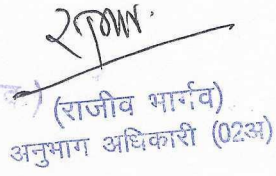 (राजीव भार्गव)
अनुभाग अधिकारी (02अ)